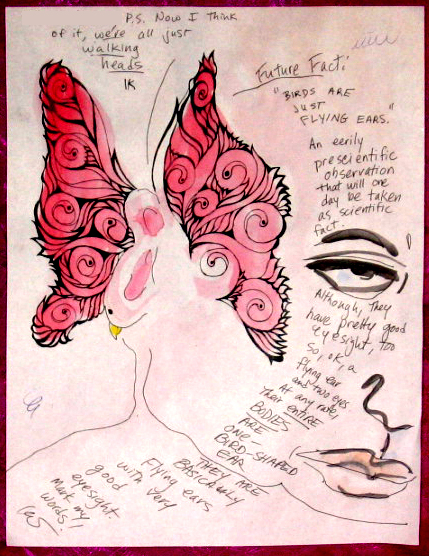 P.S. Now I think
of it, we're all just
walking
heads
Future Fact:
"BIRDS ARE
JUST
FLYING EARS."
An eerily
prescientific
observation
that will one
day be taken
as scientific
fact.
Although, they
have pretty good
eyesight, too
So, OK, a
flying ear
and two eyes
At any rate,
Their ENTIRE
BODIES
ARE
ONE-
BIRD-SHAPED
EAR
THEY ARE
BASICALLY
Flying ears
with very
good
eyesight.
Mark my
words!